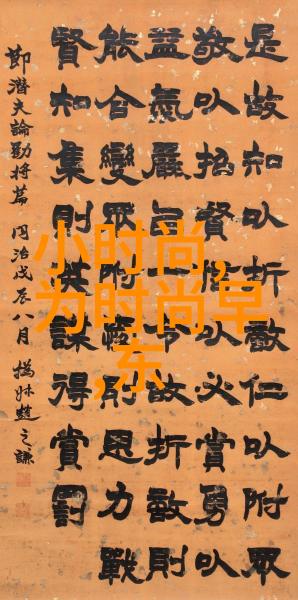 是故知以折敵仁以附眾
敬以招賢信以必賞勇以
益氣嚴以一令故折敵則
能合變眾附愛則思力戰
賢知集則英謀得賞罰
節潛夫論勸將篇 同治戊辰八月 撝叔趙之謙
小时尚,
为时尚早
,东